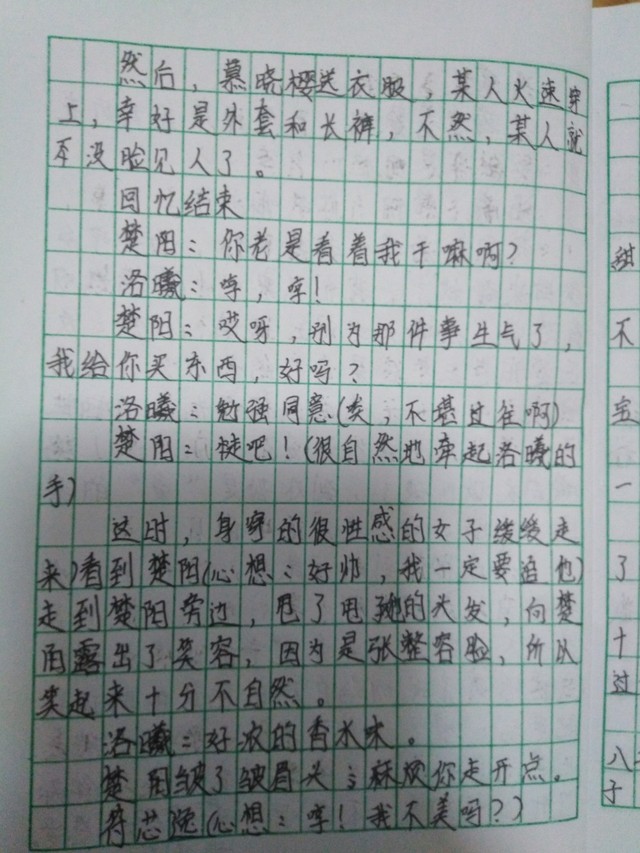 然后，慕晓樱送衣服，某人火速穿
上，幸好是外套和长裤，不然，某人就
没脸见人了。
回忆结束
楚阳：你老是看着我干嘛啊？
洛曦：哼，哼！
楚阳：哎呀，别为那件事生气了，
我给你买东西，好吗？
洛曦：勉强同意（唉，不堪过往啊）
楚阳：走吧！（很自然地牵起洛曦的
手）
这时，身穿的很性感的女子缓缓走
来）看到楚阳（心想：好帅，我一定要追他）
走到楚阳旁边，甩了甩她的头发，向楚
阳露出了笑容，因为是张整容脸，所以
笑起来十分不自然。
洛曦：好浓的香水味。
楚阳皱了皱眉头：麻烦你走开点。
符芯逸（心想：哼！我不美吗？）
甜
不
宝
一
了
十
过
八
子